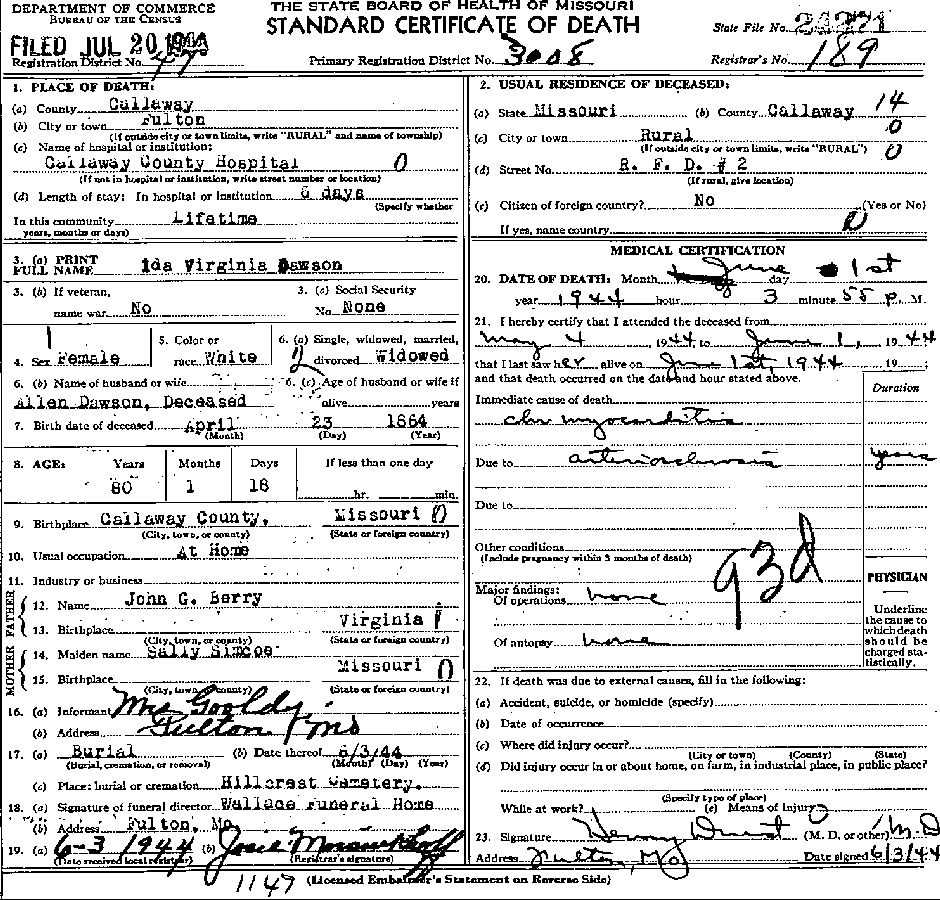 DEPARTMENT OF COMMERCE
BUREAU OF THE CENSUS
THE STATE BOARD OF HEALTH OF MISSOURI
STANDARD CERTIFICATE OF DEATH
State File No.
FILED JUL 20 1944
Registration District No. 47
Primary Registration District No. 3008
Registrar's No. 189
1. PLACE OF DEATH:
(a) County Callaway
(b) City or town Fulton
(If outside city or town limits, write "RURAL" and name of township)
(c) Name of hospital or institution:
Callaway County Hospital 0
(If not in hospital or institution, write street number or location)
(d) Length of stay: In hospital or institution days
(Specify whether
In this community Lifetime
years, months or days)
3. (a) PRINT FULL NAME Ida Virginia Dawson
3. (b) If veteran, name war No
3. (c) Social Security No. None
4. Sex Female 1
5. Color or race White
6. (a) Single, widowed, married, divorced Widowed 2
6. (b) Name of husband or wife
Allen Dawson, Deceased
6. (c) Age of husband or wife if alive years
7. Birth date of deceased April 23 1864
(Month) (Day) (Year)
8. AGE: Years Months Days If less than one day
80 1 18 hr. min.
9. Birthplace Callaway County, Missouri 0
(City, town, or county) (State or foreign country)
10. Usual occupation At Home
11. Industry or business
FATHER
12. Name John G. Berry
13. Birthplace Virginia 1
(City, town, or county) (State or foreign country)
MOTHER
14. Maiden name Sally Simcoe
15. Birthplace Missouri 0
(City, town, or county) (State or foreign country)
16. (a) Informant Mrs
(b) Address Fulton Mo
17. (a) Burial (b) Date thereof 6/3/44
(Burial, cremation, or removal) (Month) (Day) (Year)
(c) Place: burial or cremation Hillcrest Cemetery.
18. (a) Signature of funeral director Wallace Funeral Home
(b) Address Fulton, Mo
19. (a) 6-3 1944 (b) Josie
(Date received local registrar) (Registrar's signature)
2. USUAL RESIDENCE OF DECEASED:
(a) State Missouri (b) County Callaway 14
(c) City or town Rural 0
(If outside city or town limits, write "RURAL") 0
(d) Street No. R. F. D. # 2
(If rural, give location)
(e) Citizen of foreign country? No (Yes or No)
If yes, name country 0
MEDICAL CERTIFICATION
20. DATE OF DEATH: Month June day 1st
year 1944 hour 3 minute 55 P. M.
21. I hereby certify that I attended the deceased from
May 4, 1944, to June 1, 1944
that I last saw her alive on June 1st, 1944 19
and that death occurred on the date and hour stated above.
Duration
Immediate cause of death
chr myocarditis
Due to arteriosclerosis years
Due to
Other conditions
(Include pregnancy within 3 months of death)
93d
PHYSICIAN
Underline the cause to which death should be charged statistically.
Major findings:
Of operations none
Of autopsy none
22. If death was due to external causes, fill in the following:
(a) Accident, suicide, or homicide (specify)
(b) Date of occurrence
(c) Where did injury occur?
(City or town) (County) (State)
(d) Did injury occur in or about home, on farm, in industrial place, in public place?
(Specify type of place)
While at work? (e) Means of injury
23. Signature Henry (M. D. or other) M.D
Address Fulton, Mo Date signed 6/3/44
1147 (Licensed Embalmer's Statement on Reverse Side)